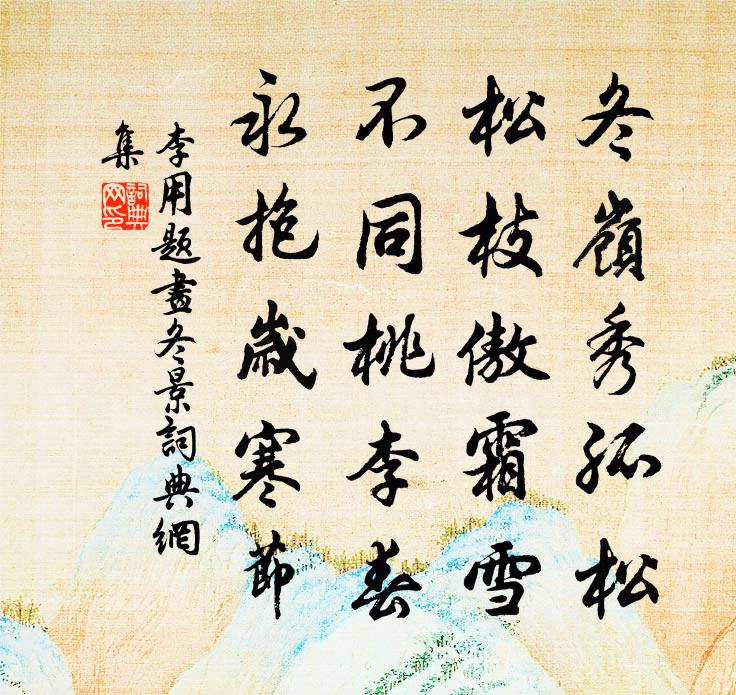 冬嶺秀孤松
松枝傲霜雪
不同桃李春
永抱歲寒節
李用題畫冬景詞典網
集
詞典
网印